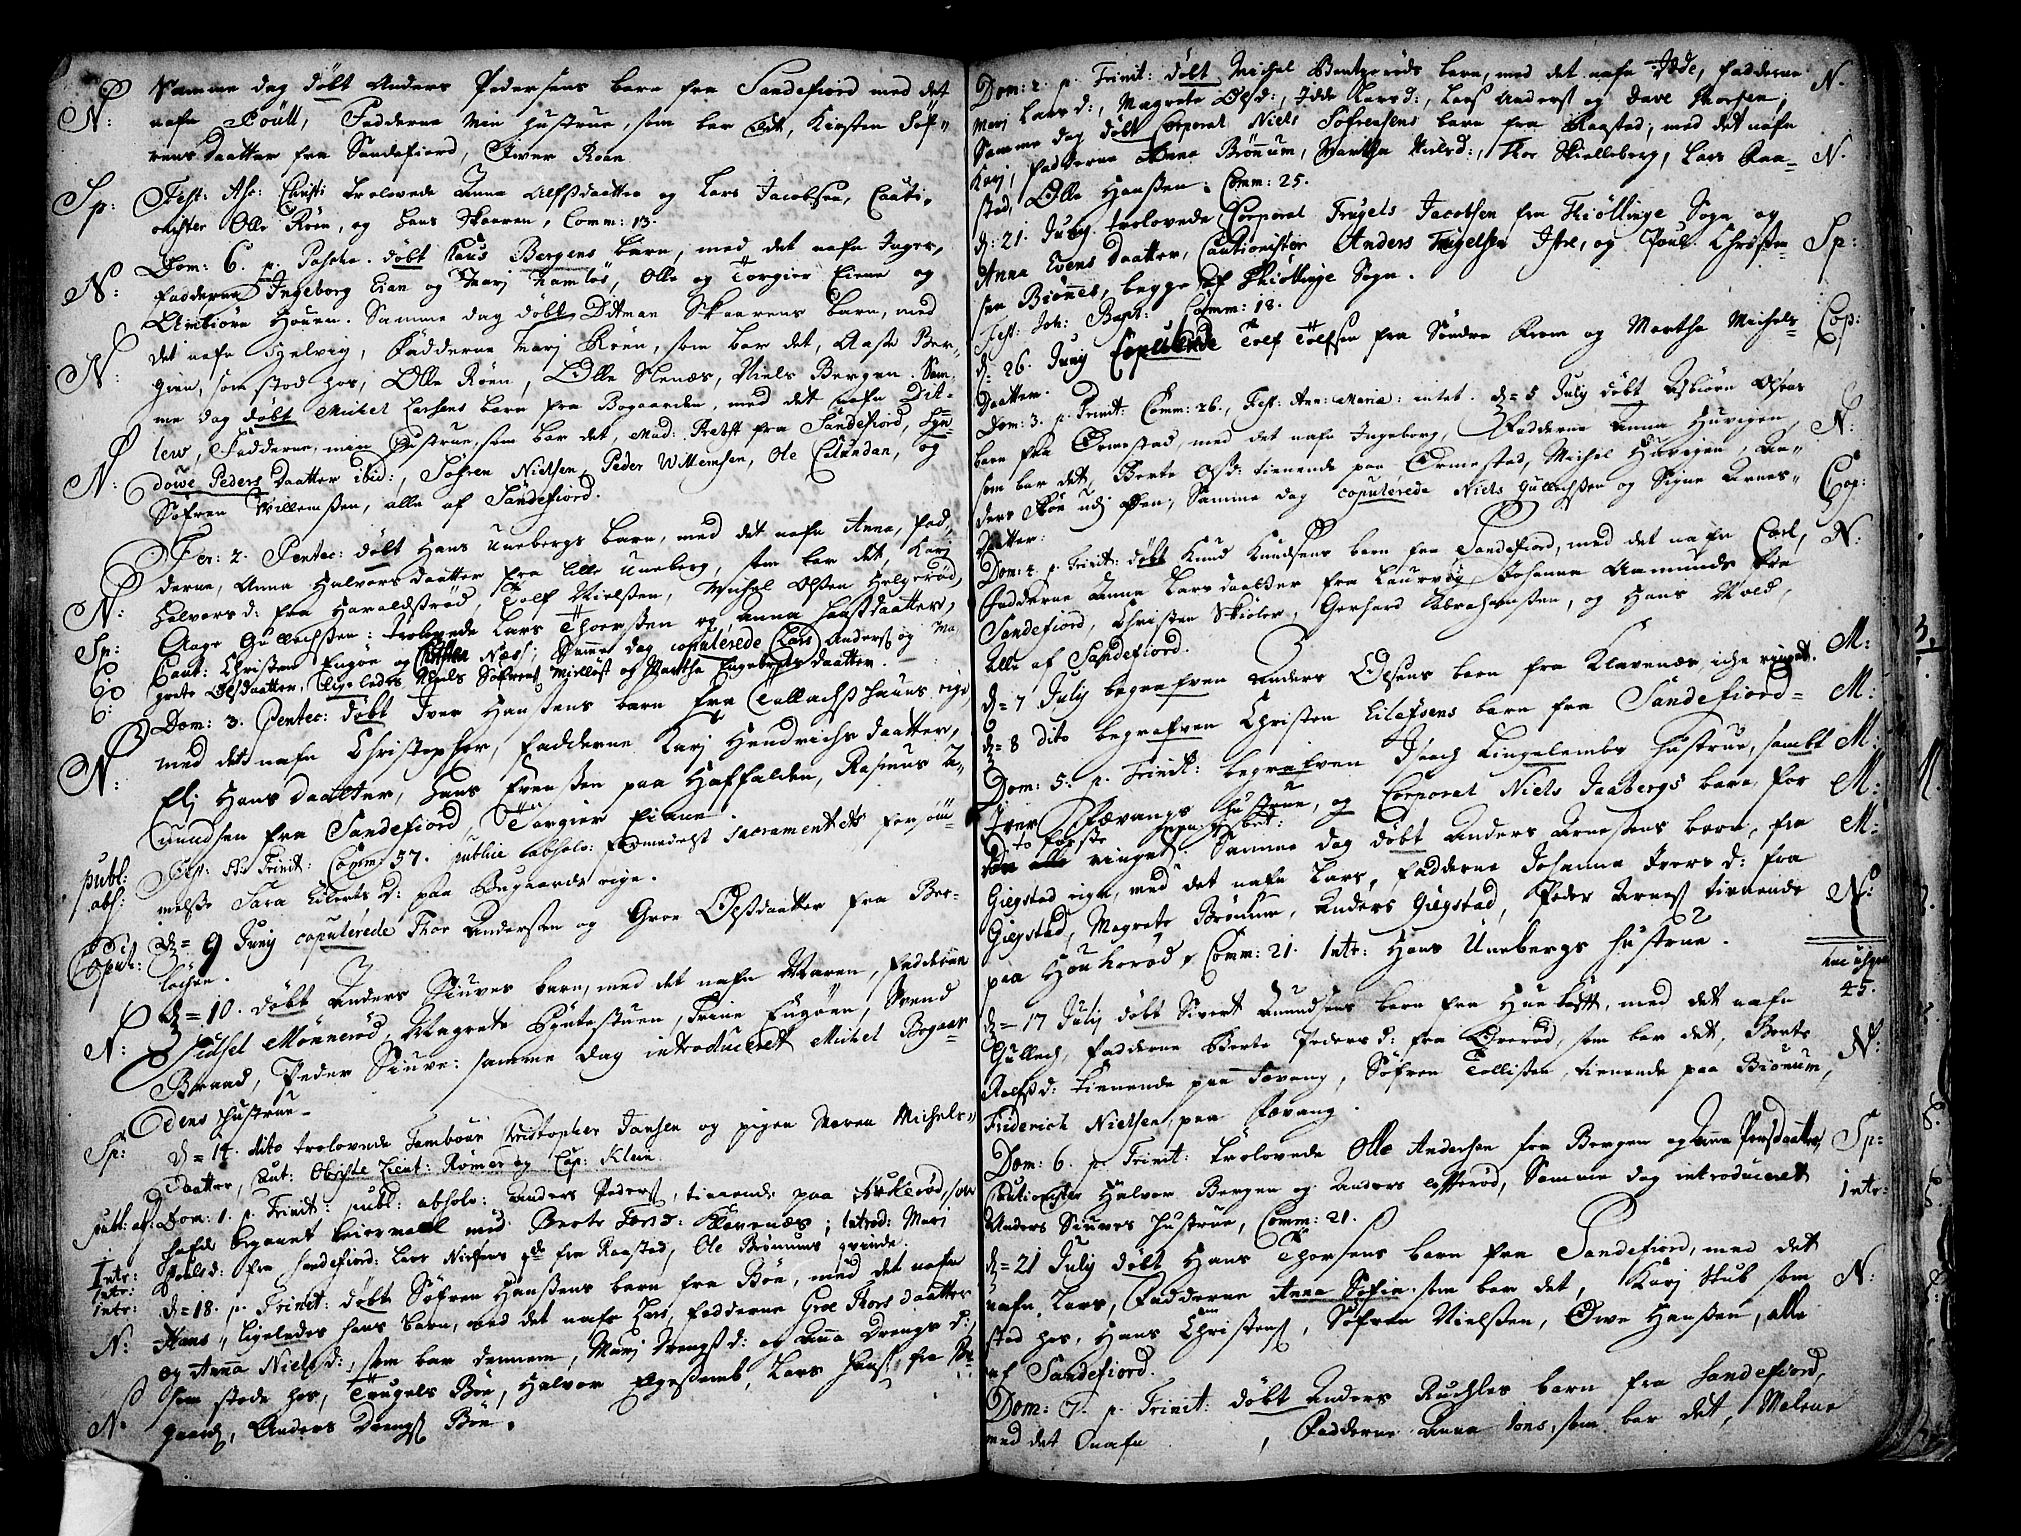 Samme dag døbt Anders Pedersens barn fra Sandefiord med det
N: nafn Poull, Fadderne min hustrue, som bar det, Kirsten Söf-
rens daatter fra Sandefiord, Iwer Roen
Sp: Fest: Asc: Christi trolovede Anna Alfsdaatter og Lars Jacobsen, Cauti-
onister Olle Röen, og Hans Skaaren, Comm: 13.
Dom: 6. p. Pascha. døbt Claus Bergens barn, med det nafn Inger,
N: fadderne Ingeborg Eian og Marj Namløs, Olle og Torgier Eiene og
Houen. Samme dag döbt Ditman Skaarens barn, med
N: det nafn Helvig, Fadderne Marj Röen, som bar det, Aase Ber-
gen, som stod hos, Olle Röen, Olle Nenæs, Niels Bergen. Sam-
me dag döbt Michel Larsens barn fra Bogaarden, med det nafn Dit-
N: lew, Fadderne, min Hustrue, som bar det, Mad: Krebst fra Sandefiord,
Peders Daatter ibid:, Sofren Nielsen, Peder Willemsen, Ole Calundan, og
Söfren Willemsen, alle af Sandefiord.
Fer: 2. Pentec: döbt Hans Unebergs barn, med det nafn Anna, fad-
derne, Anna Halvorsdaatter fra lille Uneberg, som bar det, Karj
N: Halvorsd: fra Haraldsröd, Tolf Nielsen, Michel Olsen Helgeröd,
Sp: Aage Gullechsen: trolovede Lars Thorsen og Anna Larsdaatter,
Caut: Christen Engöe og Næs; Samme dag copulerede Lars Anders og Ma-
grete Olsdaatter, ligeledes Niels Söfrens og Martha Engebregtsdaatter.
Dom: 3. Pentec: döbt Iver Hansens barn fra Tullachshauns eige
N: med det nafn Christopher, Fadderne Karj Hendrichsdaatter,
Elj Hansdaatter, Hans Evensen paa Haffalden, Rasmus A-
mundsen fra Sandefiord, Torgier Eiane.
publ: Fest: SS Trinit: Comm: 37. publice absolv: formedelst Sacramentets forsöm-
abs: melse Sara Eilerts D: paa Bugaards eige.
Copul: D= 9 Junij copulerede Thor Andersen og Groe Olsdaatter fra Ber-
löchen.
D= 10. döbt Anders Siuves barn, med det nafn Maren, fadderne
N: Sidsel Mönneröd, Magrete Bÿtestuen, Trine Engöen, Svend
Brand, Peder Siuve: samme dag introduceret Michel Bogaar-
dens Hustrue
Sp: D= 14. dito trolovede Tambour Christopher Jansen og pigen Maren Michels-
daatter, Caut: Obriste Lieut: Römer og Cap: Klein.
publ: abs: Dom: 1. p. Trinit: publ: absolv: Anders Peders, tienende paa Aukeröd, for
hafde begaaet leiermaal med Berte Torsd: Klavenæs; Introd: Marj
Intr: Poulsd: fra Sandefiord: Lars Nielsens fra Raastad, Ole Brönums qvinde.
Intr:
intr: D=18. p. Trinit: döbt Söfren Hansens barn fra Böe, med det nafn
N: Hans, ligeledes hans barn, med det nafn Lars, fadderne Groe Thorsdaatter
og Anna Nielsd:, som bar dennem, Marj Drengsd: og Anna Drengsd:,
N: som stode hos, Trugels Böe, Halvor, Lars Hans, fra Bu-
gaard, Anders Drengs Böe.
Dom: 2. p. Trinit: döbt Michel Bentzeröds barn, med det nafn Idde, fadderne N.
Marj Larsd:, Magrete Olsd:, Idde Larsd:, Lars Anders og Dave Thorsen;
Samme dag döbt Corporal Niels Sofrensens barn fra Raastad, med det nafn
Karj, fadderne Anna Brönum, Martha Nielsd:, Thor Skielleberg, Lars Raa- N.
stad, Olle Hansen. Comm: 25.
D: 21. Junij trolovede Corporal Trugels Jacobsen fra Thiöllinge Sogn og
Anna Evens Daatter, Cautionister Anders Trugelsen Istre, og Poul Christen- Sp:
sen Biönnes, begge af Thiöllinge Sogn.
Fest: Joh: Bapt: Comm: 18.
D= 26. Junij Copulerede Tolf Tolfsen fra Söndre Krom og Martha Michels- Cop:
daatter.
Dom: 3. p. Trinit: Comm: 26., Fest: Ann: Mariæ: intet. D= 5 Julij döbt Asbiörn Olsens
barn fra Ormestad, med det nafn Ingeborg, Fadderne Anna Huvigen, N:
som bar det, Berte Olsd: tienende paa Ormestad, Michel Huvigen, An-
ders; Samme dag copulerede Niels Gullechsen og Signe Arnes- Cop:
daatter:
Dom: 4. p. Trinit: döbt Knud Knudsens barn fra Sandefiord, med det nafn Carl, N:
Fadderne Anna Larsdaatter fra Laurvig, Johanna Aamunds fra
Sandefiord, Christen Skiöler, Gerhard Abrahamsen, og Hans Wold,
Alle af Sandefiord.
D= 7 Julij begrafven Anders Olsens barn fra Klavenæs, iche ringet. M:
D= 8 dito begrafven Christen Eilefsens barn fra Sandefiord= M:
Dom: 5. p. Trinit: begrafven Isach Lingelembs Hustrue, sambt M:
Iver Fævangs hustrue, og Corporal Niels Jaabergs barn, for M:
to første ringed bet: Samme dag döbt Anders Arnesens barn, fra M:
Giegstad eige, med det nafn Lars, fadderne Johanna Iversd: fra
Giegstad, Magrete Brönum, Anders Giegstad, Peder Arnes tienende N:
paa Houkeröd, Comm: 21. Intr: Hans Unebergs Hustrue.
45.
D= 17 Julij döbt Sivert Amundsens barn fra, med det nafn
Gullech, fadderne Berte Pedersd: fra Oreröd, som bar det, Berte N:
Rolfsd: tienende paa Fevang, Söfren Tollisen, tienende paa Biönum,
Friderich Nielsen paa Fævang.
Dom: 6. p. Trinit: trolovede Olle Andersen fra Bergen og Anna Povelsdaatter, Sp:
Cautionister Halvor Bergen og Anders, Samme dag introduceret intr:
Anders Siuves Hustrue, Comm: 21.
D= 21 Julij döbt Hans Thorsens barn fra Sandefiord, med det
nafn, Lars, Fadderne Anna Sofia som bar det, Karj Stub som N:
stod hos, Hans Christens, Söfren Nielsen, Owe Hansen, alle
af Sandefiord.
Dom: 7. p. Trinit: döbt Anders Ruchles barn fra Sandefiord,
med det nafn , Fadderne Anna Jons, som bar det, Malene